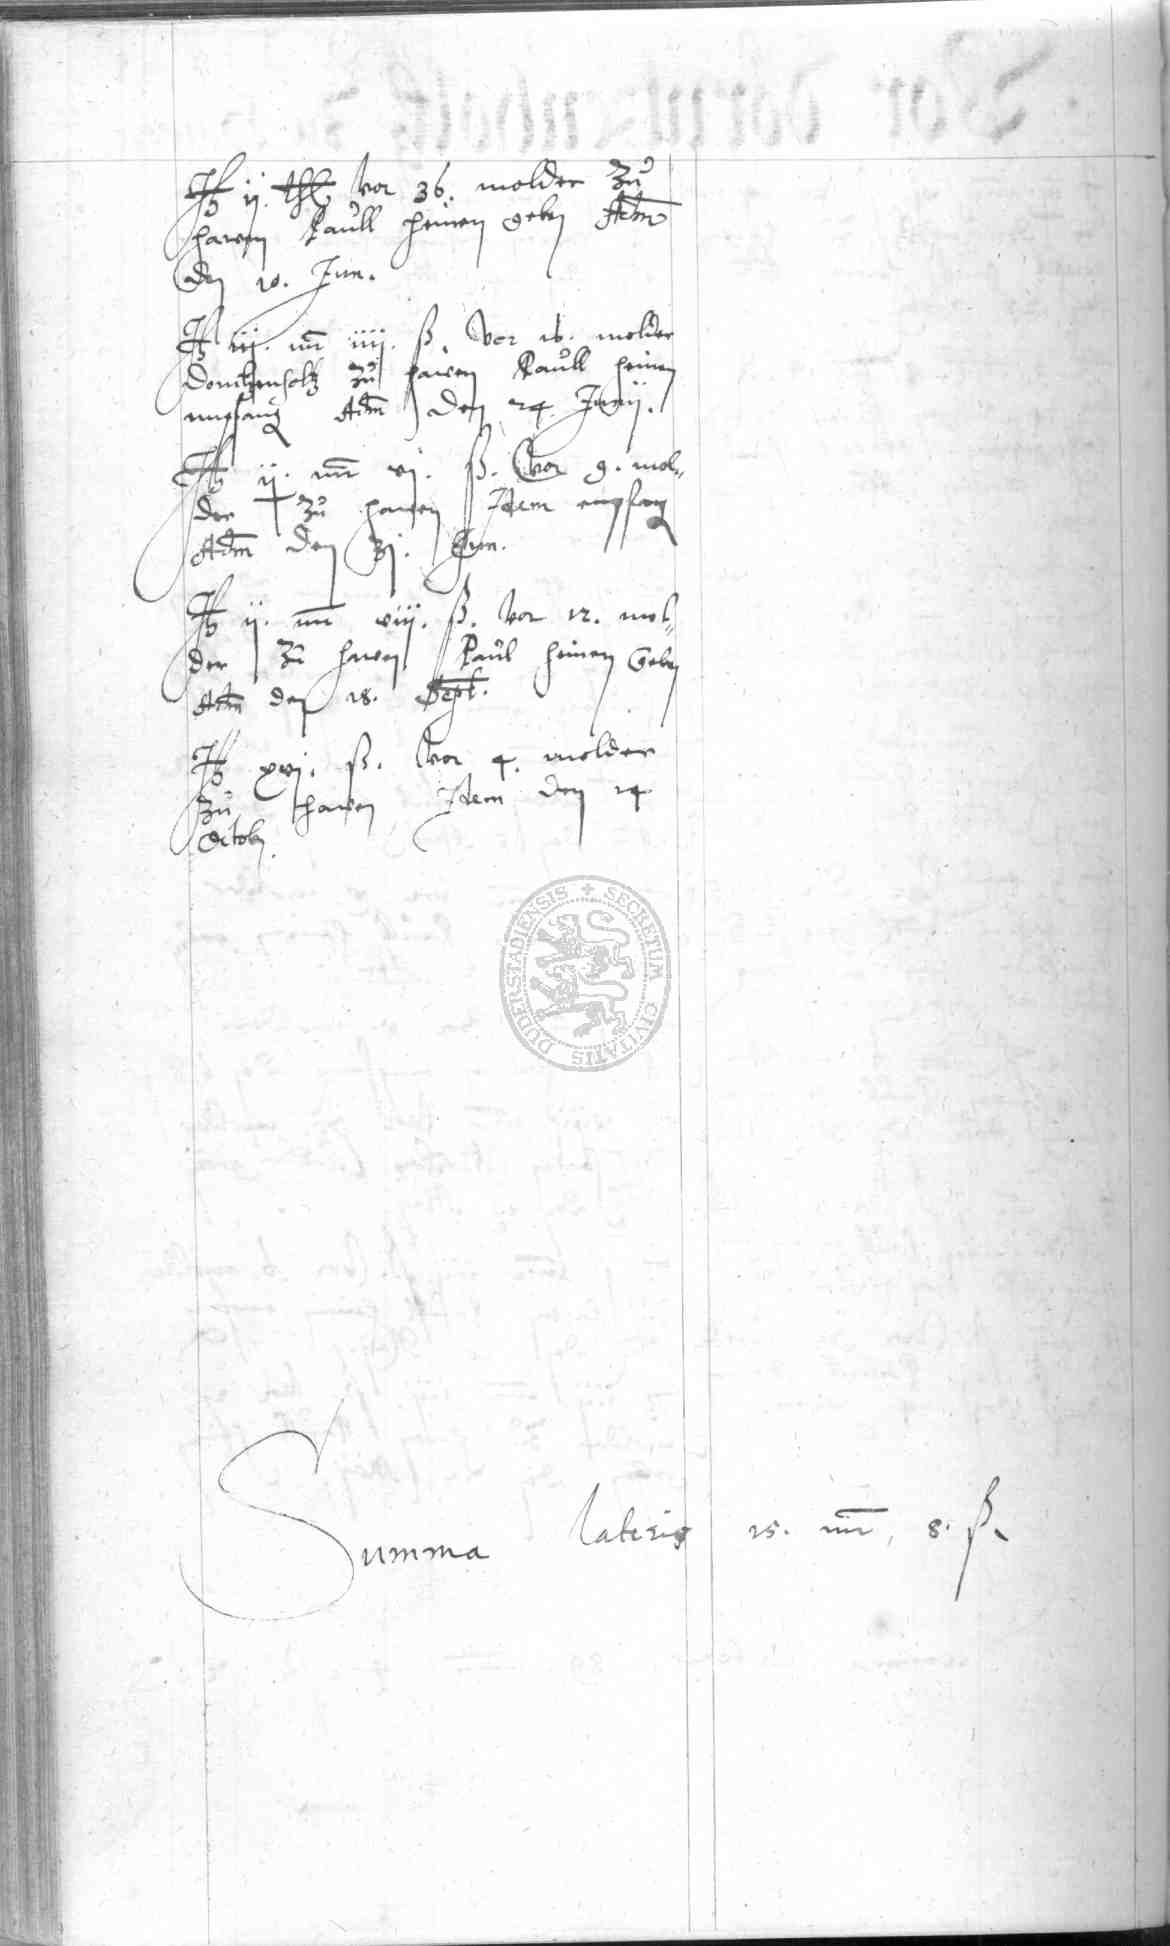 It ij. thl. vor 36. molder zu
hawen Paull heinen geben Adm
den 10. Jun.
It iij. mr iiij. ß. vor 16. molder
Dornhenholtz zu hawen Paull heinen
empfang Adm den 24 Junij.
It ij. mr vj. ß. vor 9. mol-
der zu hawen Idem empfang
Adm den 31.
It ij. mr viij. ß. vor 12. mol-
der zu hawen Paul heinen Geben
Adm den 18. Sept.
It xvj. ß. vor 4. molder
zu hawen Idem den 14
Octob.
SECRETUM CIVITATIS DUDERSTADIENSIS
Summa lateris 15. mr, 8. ß.